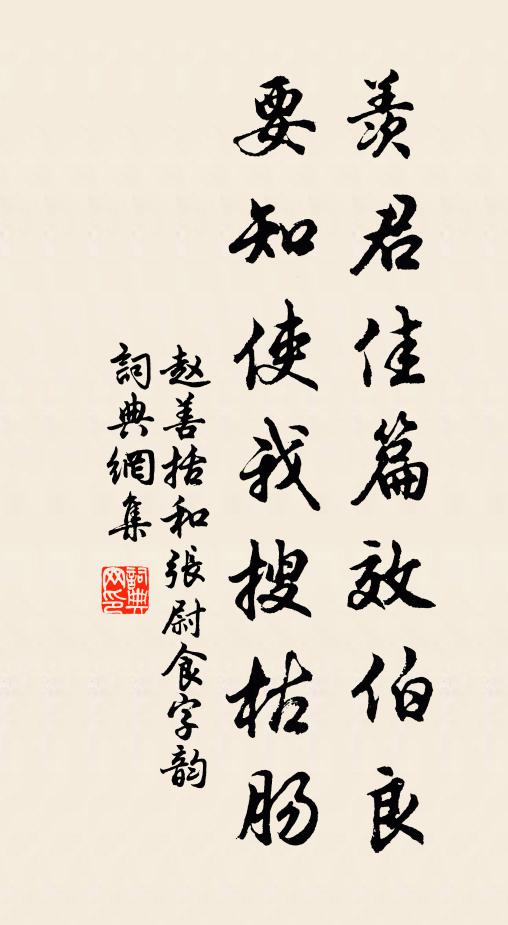 羨君佳篇效伯良
要知使我搜枯肠
赵善括和張尉食字韵
詞典網集
詞典網印